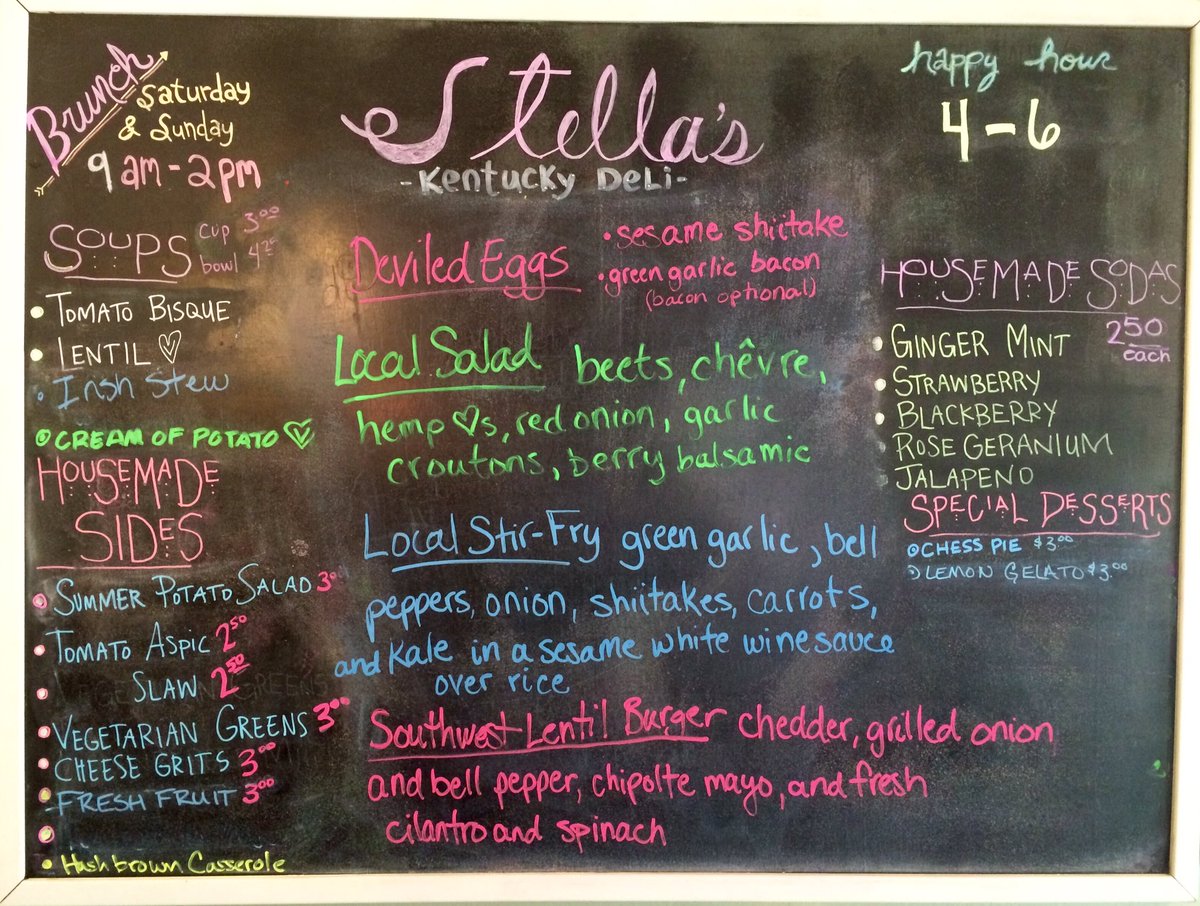 Brunch
Saturday
& Sunday
9 am - 2 pm
Stella's
- Kentucky Deli -
happy hour
4 - 6
SOUPS
cup 3.00
bowl 4.25
• TOMATO BISQUE
• LENTIL ♡
• Irish Stew
• CREAM OF POTATO ♡
HOUSEMADE
SIDES
• SUMMER POTATO SALAD 3.00
• TOMATO ASPIC 2.50
• SLAW 2.50
• VEGETARIAN GREENS 3.00
• CHEESE GRITS 3.00
• FRESH FRUIT 3.00
•
• Hash brown Casserole
Deviled Eggs
• sesame shiitake
• green garlic bacon
(bacon optional)
Local Salad beets, chêvre,
hemp ♡s, red onion, garlic
croutons, berry balsamic
Local Stir-Fry green garlic, bell
peppers, onion, shiitakes, carrots,
and kale in a sesame white wine sauce
over rice
Southwest Lentil Burger chedder, grilled onion
and bell pepper, chipolte mayo, and fresh
cilantro and spinach
HOUSEMADE SODAS
2.50
each
• GINGER MINT
• STRAWBERRY
• BLACKBERRY
ROSE GERANIUM
JALAPENO
SPECIAL DESSERTS
• CHESS PIE $3.00
• LEMON GELATO $3.00